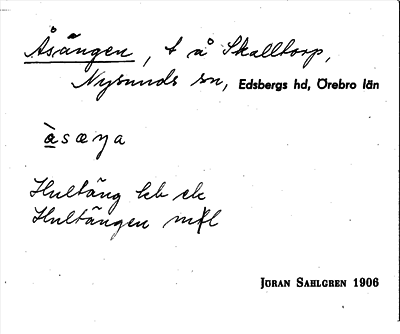 Åsängen, t å Skalltorp,
Nysunds sn, Edsbergs hd, Örebro län
àsæŋa
Hultäng kb ek
Hultängen mfl
JÖRAN SAHLGREN 1906